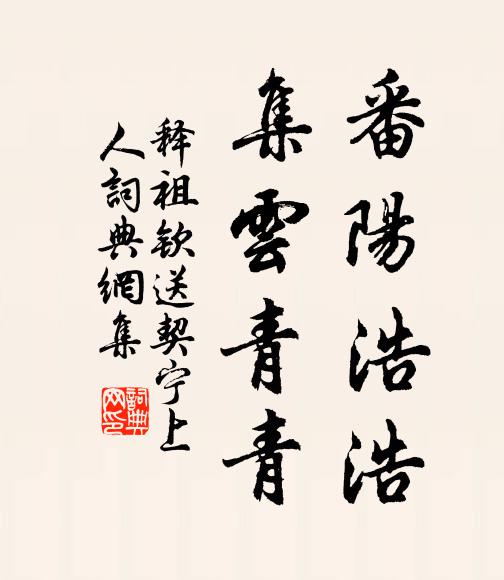 番陽浩浩
集雲青青
释祖钦送契宁上
人詞典網集
詞典网印